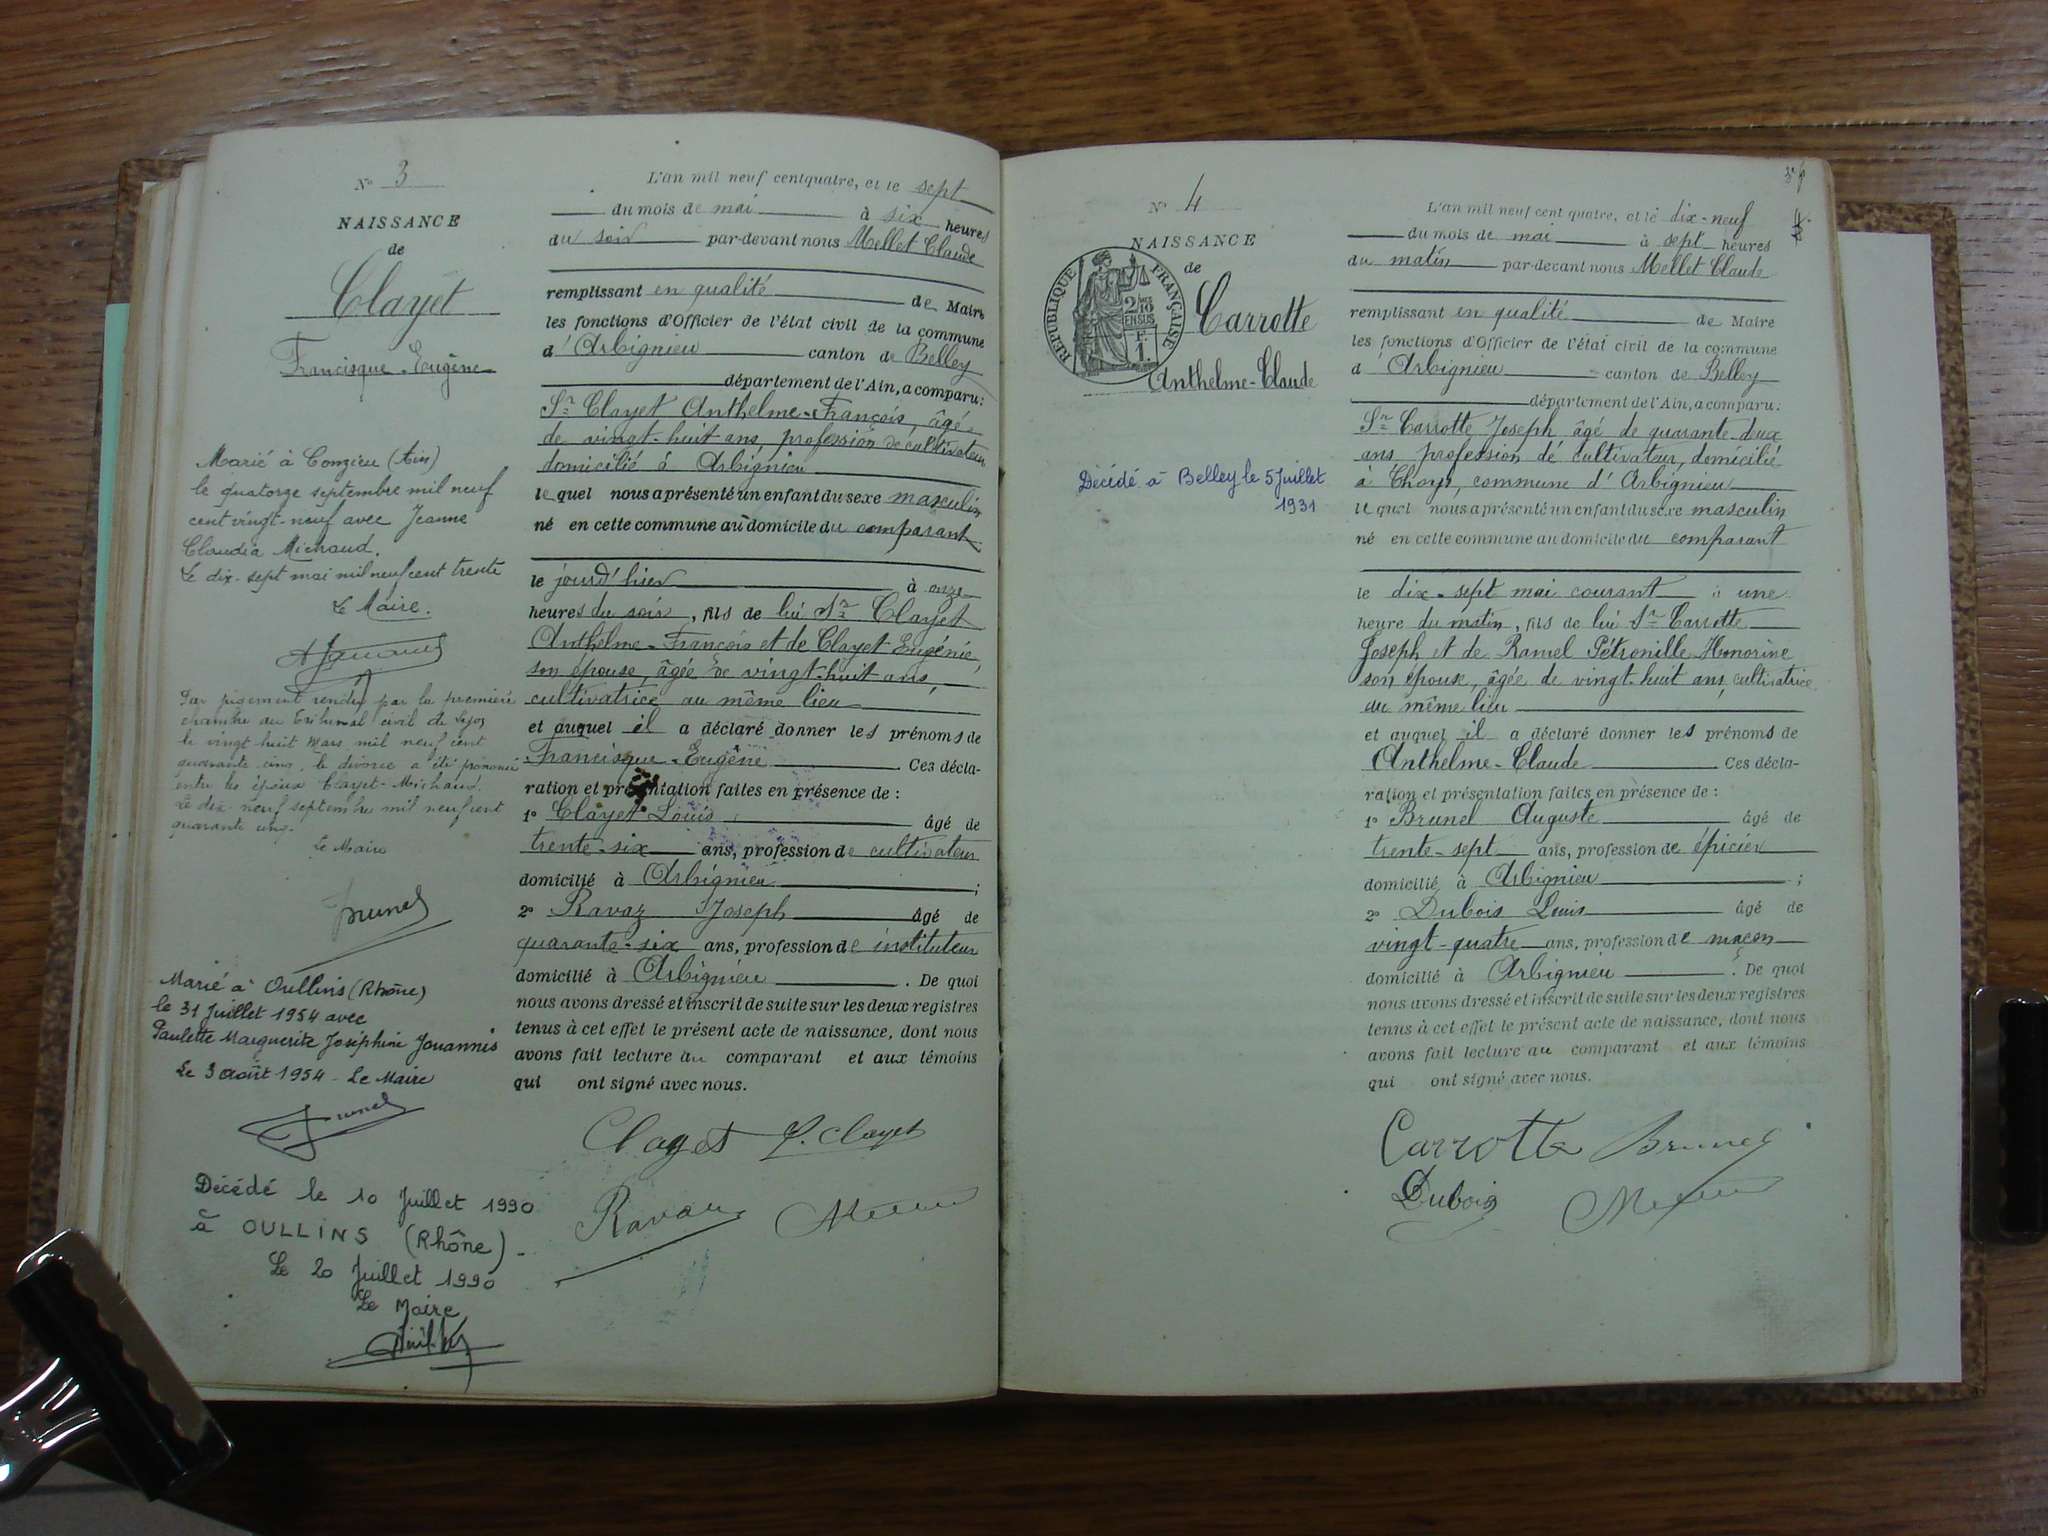 N° 3
NAISSANCE
de
Clayet
Francisque-Eugène
Marié à Conzieu (Ain)
le quatorze septembre mil neuf
cent vingt-neuf avec Jeanne
Claudia Michaud.
Le dix-sept mai mil neuf cent trente
Le Maire.
Par jugement rendu par la première
chambre du tribunal civil de Lyon
le vingt huit Mars mil neuf cent
quarante cinq, le divorce a été prononcé
entre les époux Clayet-Michaud.
Le dix-neuf septembre mil neuf cent
quarante cinq.
Le Maire
Brunel
Marié à Oullins (Rhône)
le 31 Juillet 1954 avec
Paulette Marguerite Joséphine Jouannis
Le 3 août 1954 - Le Maire
Brunel
Décédé le 10 Juillet 1990
à OULLINS (Rhône).
Le 20 Juillet 1990
Le Maire
L'an mil neuf cent quatre, et le sept
du mois de mai à six heures
du soir par-devant nous Mellet Claude
remplissant en qualité de Maire
les fonctions d'Officier de l'état civil de la commune
d'Arbignieu canton de Belley
département de l'Ain, a comparu:
Sr Clayet Anthelme-François, âgé
de vingt-huit ans, profession de cultivateur
domicilié à Arbignieu
lequel nous a présenté un enfant du sexe masculin
né en cette commune au domicile du comparant
le jourd'hier à onze
heures du soir, fils de lui Sr Clayet
Anthelme-François et de Clayet Eugénie,
son épouse, âgée de vingt-huit ans,
cultivatrice au même lieu
et auquel il a déclaré donner les prénoms de
Francisque-Eugène Ces décla-
ration et présentation faites en présence de :
1° Clayet Louis âgé de
trente-six ans, profession de cultivateur
domicilié à Arbignieu ;
2° Ravaz Joseph âgé de
quarante-six ans, profession de instituteur
domicilié à Arbignieu . De quoi
nous avons dressé et inscrit de suite sur les deux registres
tenus à cet effet le présent acte de naissance, dont nous
avons fait lecture au comparant et aux témoins
qui ont signé avec nous.
Clayet L. Clayet
Ravaz
N° 4
NAISSANCE
de
RÉPUBLIQUE FRANÇAISE
2/10 EN SUS
1 F.
Carrotte
Anthelme-Claude
Décédé à Belley le 5 Juillet
1931
L'an mil neuf cent quatre, et le dix-neuf
du mois de mai à sept heures
du matin par-devant nous Mellet Claude
remplissant en qualité de Maire
les fonctions d'Officier de l'état civil de la commune
d'Arbignieu canton de Belley
département de l'Ain, a comparu:
Sr Carrotte Joseph âgé de quarante-deux
ans, profession de cultivateur, domicilié
à Thoys, commune d'Arbignieu
lequel nous a présenté un enfant du sexe masculin
né en cette commune au domicile du comparant
le dix-sept mai courant à une
heure du matin, fils de lui Sr Carrotte
Joseph et de Ramel Pétronille Honorine
son épouse, âgée de vingt-huit ans, cultivatrice
au même lieu
et auquel il a déclaré donner les prénoms de
Anthelme-Claude Ces décla-
ration et présentation faites en présence de :
1° Brunel Auguste âgé de
trente-sept ans, profession de épicier
domicilié à Arbignieu ;
2° Dubois Louis âgé de
vingt-quatre ans, profession de maçon
domicilié à Arbignieu . De quoi
nous avons dressé et inscrit de suite sur les deux registres
tenus à cet effet le présent acte de naissance, dont nous
avons fait lecture au comparant et aux témoins
qui ont signé avec nous.
Carrotte Brunel
Dubois